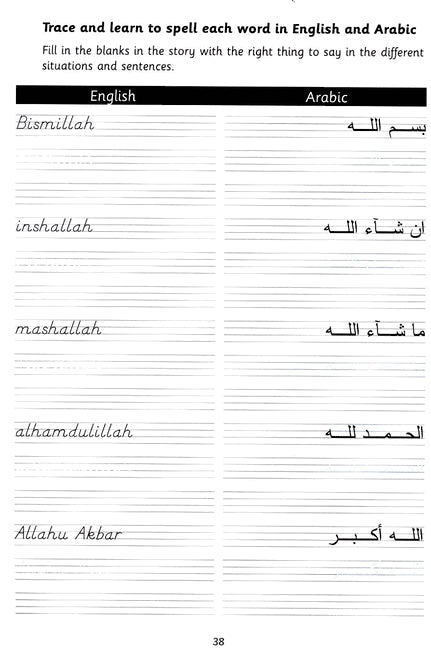 Trace and learn to spell each word in English and Arabic
Fill in the blanks in the story with the right thing to say in the different
situations and sentences.
English Arabic
Bismillah بسم الله
inshallah ان شآء الله
mashallah ما شآء الله
alhamdulillah الحمد لله
Allahu Akbar الله أكبر
38